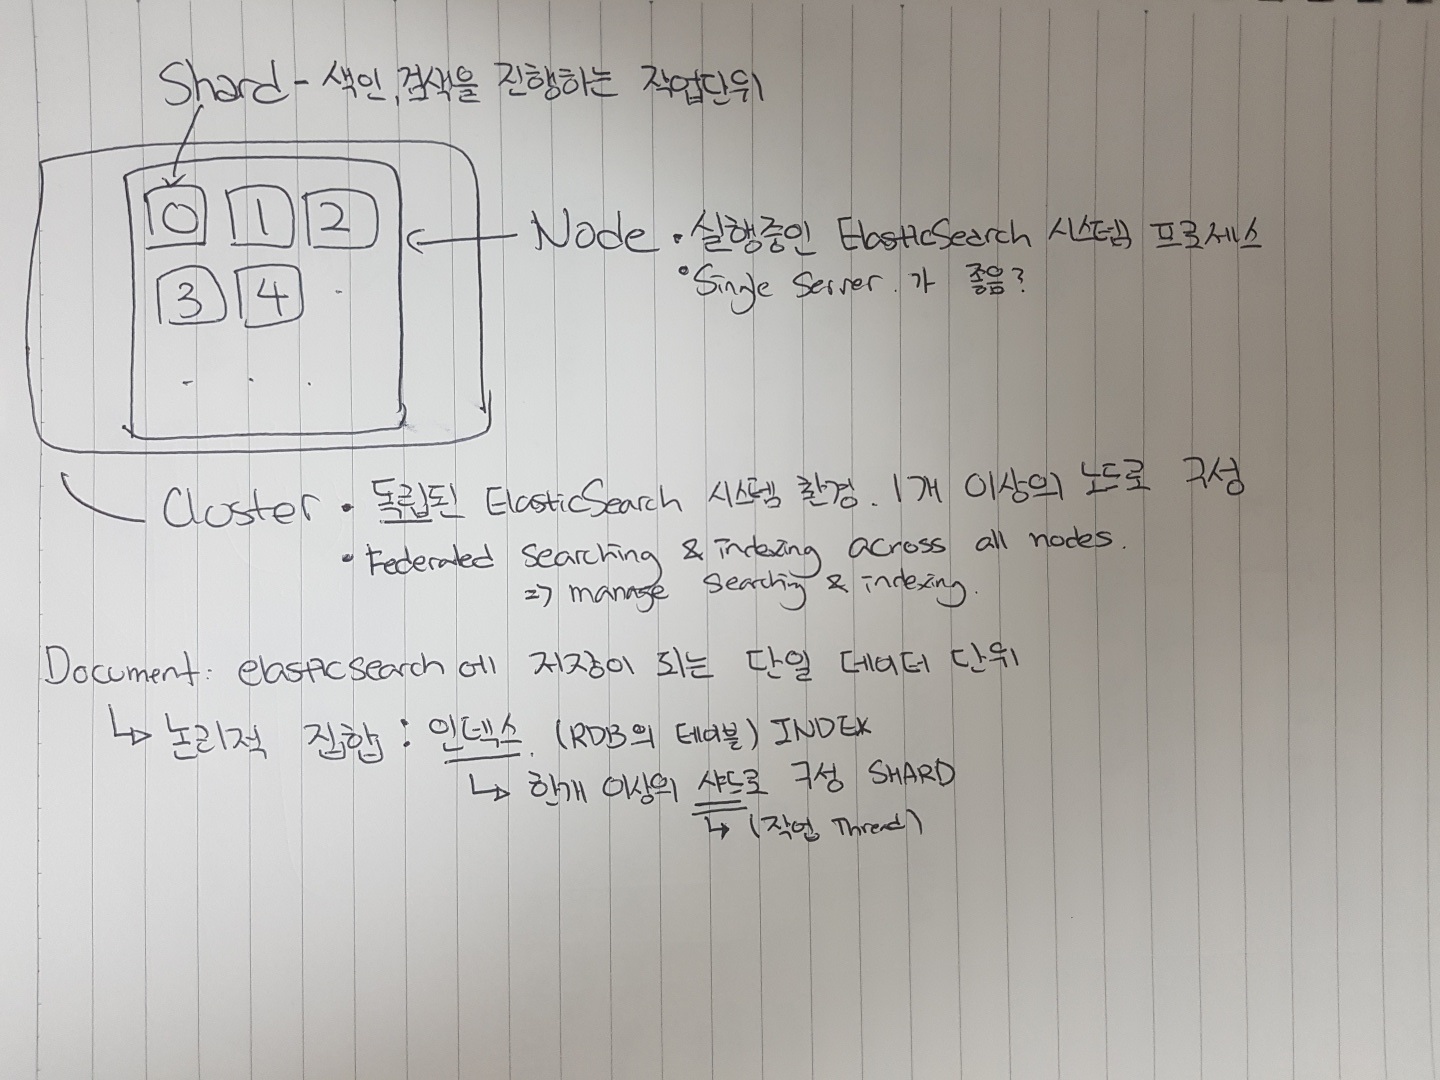 Shard - 색인, 검색을 진행하는 작업단위
0 1 2
3 4
Node • 실행중인 ElasticSearch 시스템 프로세스
• Single Server.가 좋음?
Cluster • 독립된 ElasticSearch 시스템 환경. 1개 이상의 노드로 구성
• Federated searching & indexing across all nodes.
=> manage searching & indexing.
Document: elasticsearch에 저장이 되는 단일 데이터 단위
↳ 논리적 집합 : 인덱스. (RDB의 테이블) INDEX
↳ 한개 이상의 샤드로 구성 SHARD
↳ (작업 Thread)